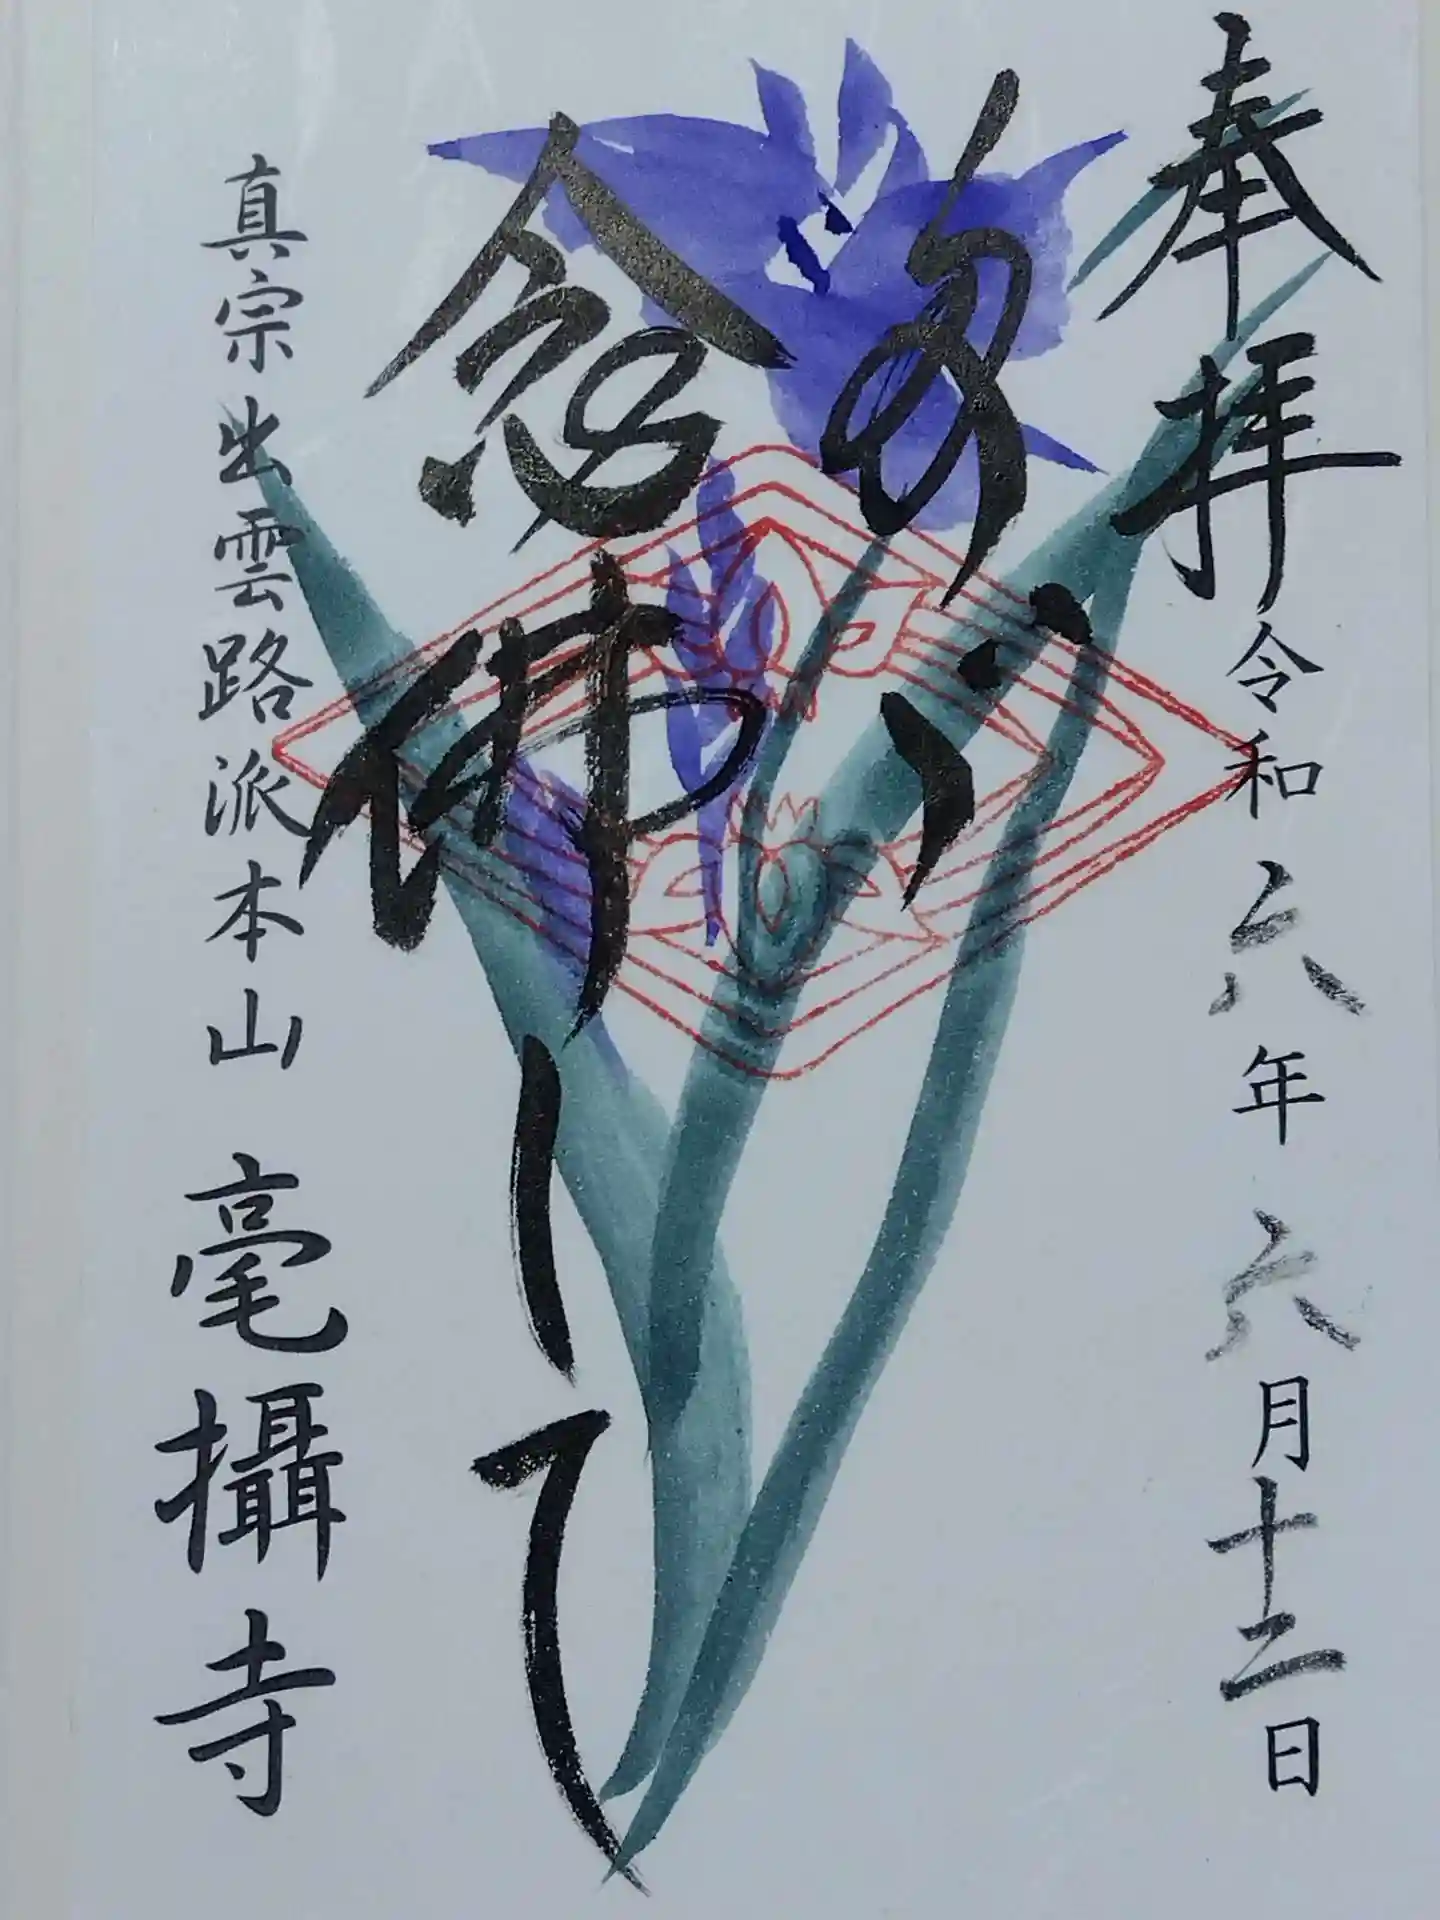 奉拝
令和六年六月十二日
念佛して
真宗出雲路派本山 毫攝寺